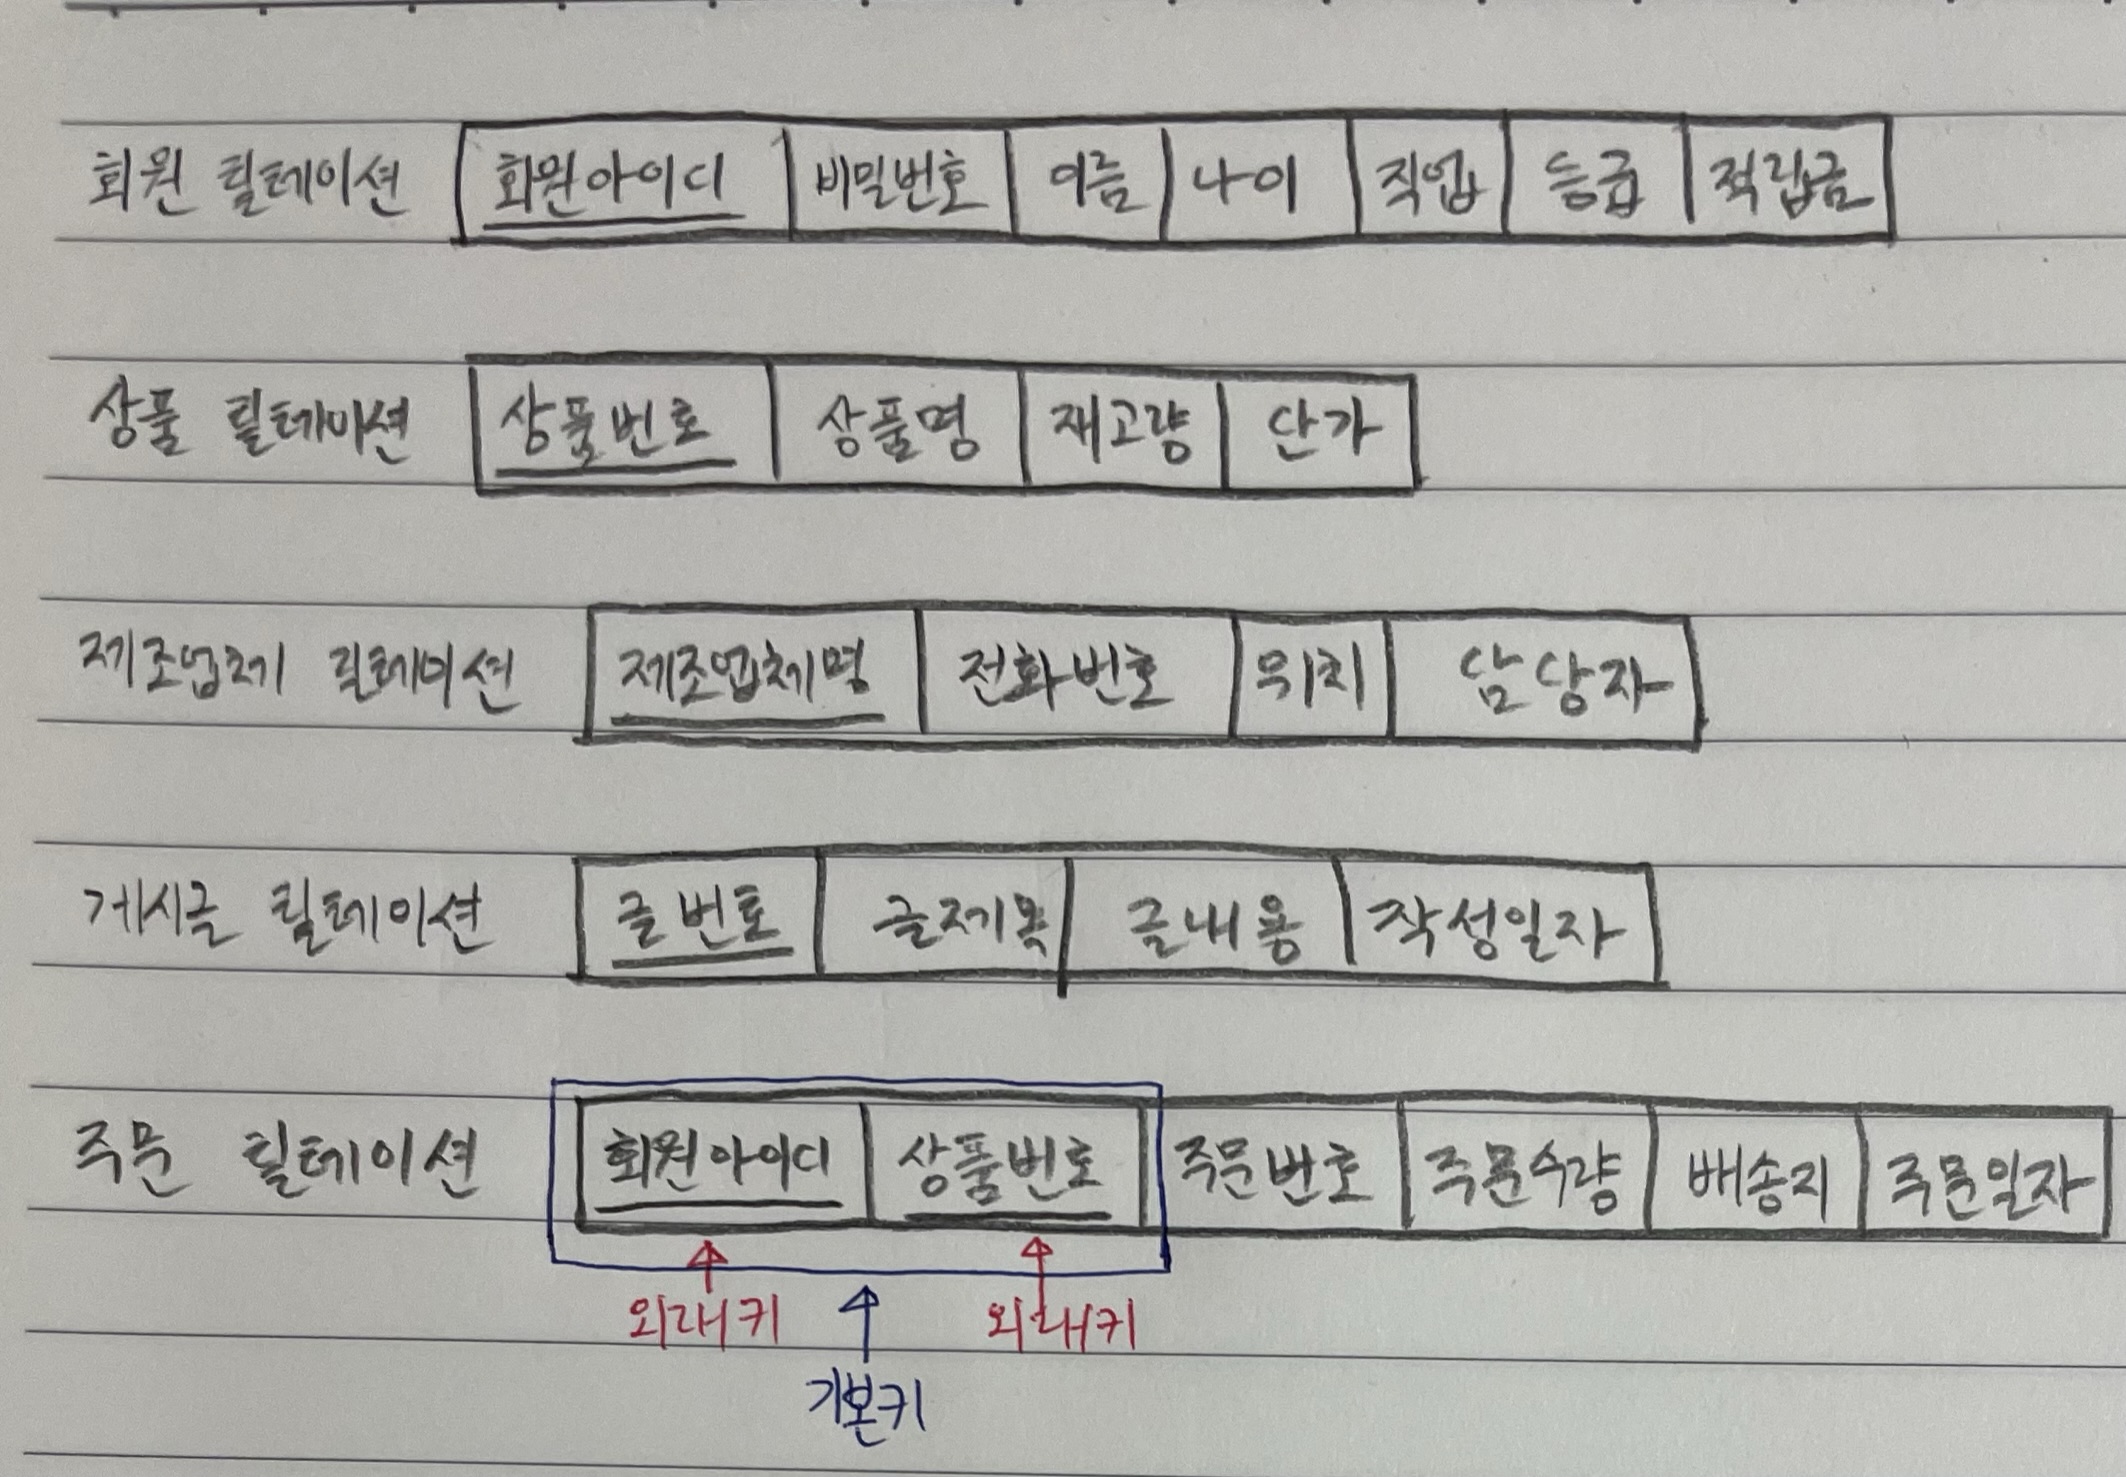 회원 릴레이션 회원아이디 비밀번호 이름 나이 직업 등급 적립금
상품 릴레이션 상품번호 상품명 재고량 단가
제조업체 릴레이션 제조업체명 전화번호 위치 담당자
게시글 릴레이션 글번호 글제목 글내용 작성일자
주문 릴레이션 회원아이디 상품번호 주문번호 주문수량 배송지 주문일자
외래키 외래키
기본키